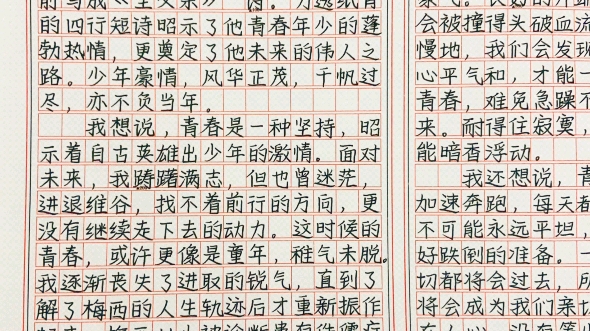 的四行短诗昭示了他青春年少的蓬
勃热情，更奠定了他未来的伟人之
路。少年豪情，风华正茂，千帆过
尽，亦不负当年。
我想说，青春是一种坚持，昭
示着自古英雄出少年的激情。面对
未来，我踌躇满志，但也曾迷茫，
进退维谷，找不着前行的方向，更
没有继续走下去的动力。这时候的
青春，或许更像是童年，稚气未脱。
我逐渐丧失了进取的锐气，直到了
解了梅西的人生轨迹后才重新振作
会被撞得头破血流
慢地，我们会发现
心平气和，才能一
青春，难免急躁不
来。耐得住寂寞，
能暗香浮动。
我还想说，青
加速奔跑，每天都
不可能永远平坦，
好跌倒的准备。一
切都将会过去，所
将会成为我们亲切